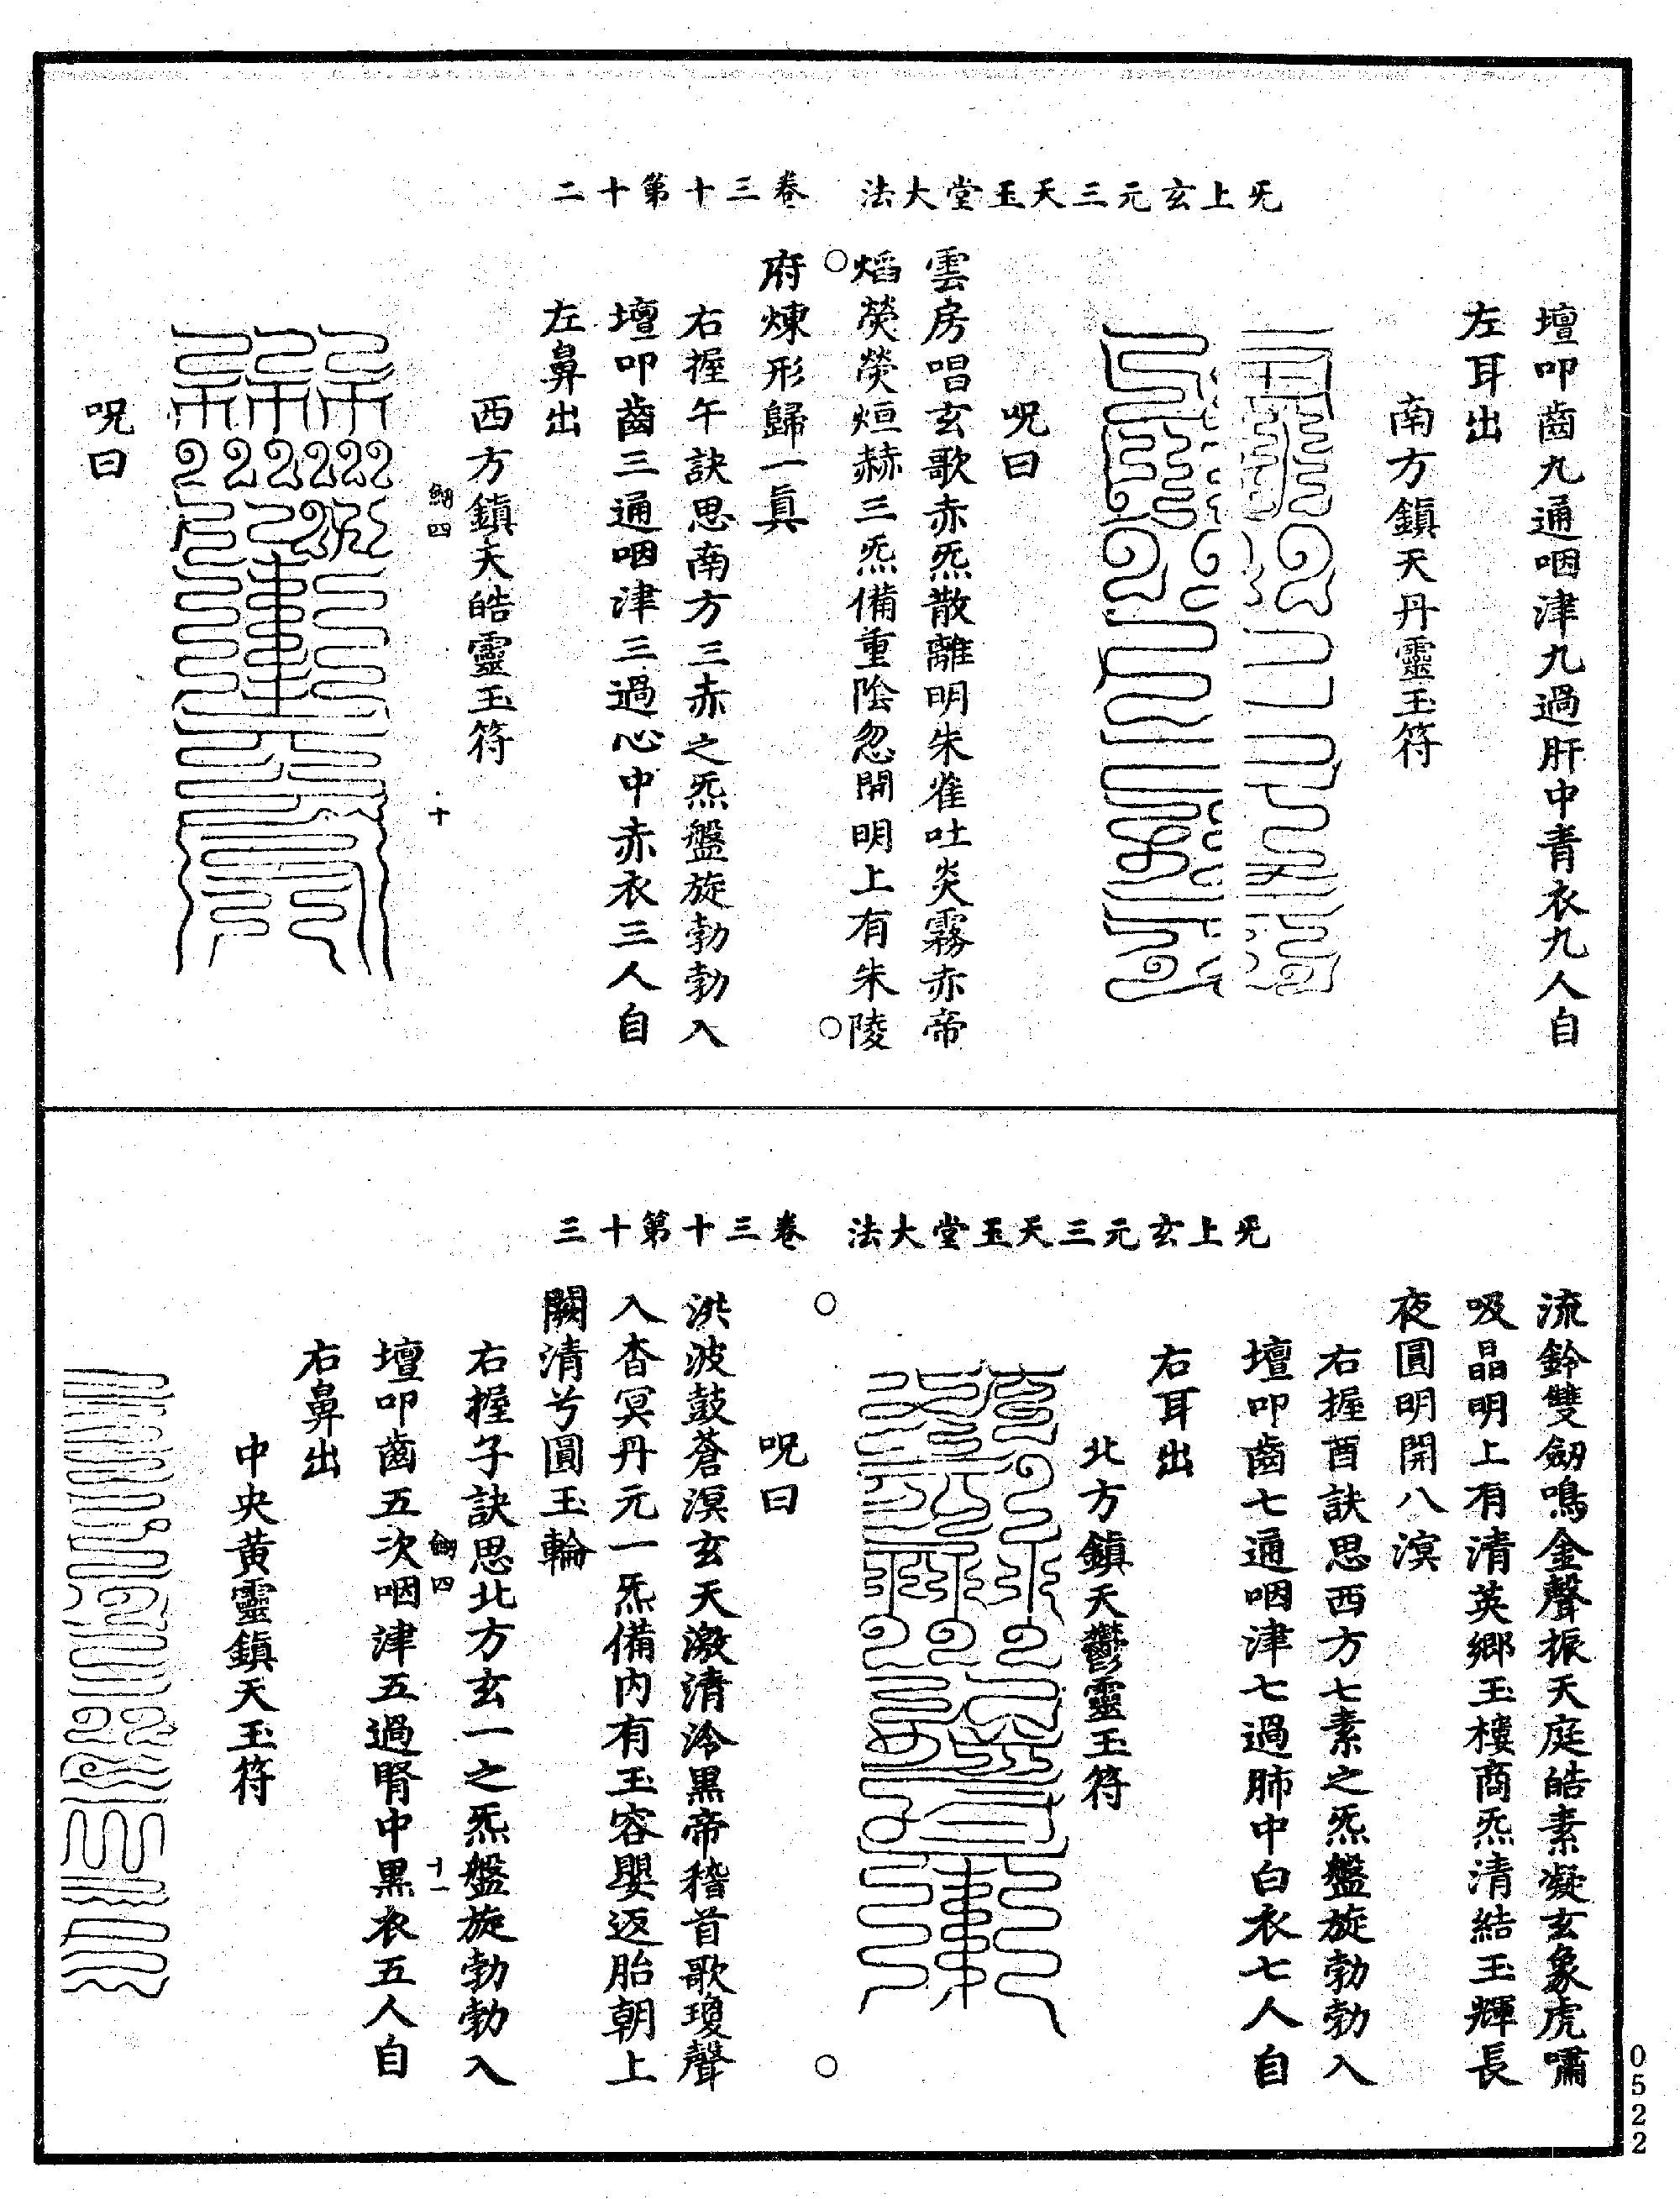 无上玄元三天玉堂大法　卷三十第十二
壇叩齒九通咽津九過肝中青衣九人自
左耳出
南方鎮天丹靈玉符
呪曰
雲房唱玄歌赤炁散離明朱雀吐炎霧赤帝
熖熒熒烜赫三炁備重陰忽開明上有朱陵
府煉形歸一真
右握午訣思南方三赤之炁盤旋勃勃入
壇叩齒三通咽津三過心中赤衣三人自
左鼻出
西方鎮天皓靈玉符
四　十
呪曰
无上玄元三天玉堂大法　卷三十第十三
流鈴雙劒鳴金聲振天庭皓素凝玄象虎嘯
吸晶明上有清英鄉玉樓商炁清結玉輝長
夜圓明開八溟
右握酉訣思西方七素之炁盤旋勃勃入
壇叩齒七通咽津七過肺中白衣七人自
右耳出
北方鎮天鬱靈玉符
呪曰
洪波鼓蒼溟玄天激清泠黑帝稽首歌瓊聲
入杳冥丹元一炁備內有玉容嬰返胎朝上
闕清兮圓玉輪
右握子訣思北方玄一之炁盤旋勃勃入
四　十一
壇叩齒五次咽津五過腎中黑衣五人自
右鼻出
中央黃靈鎮天玉符
0522